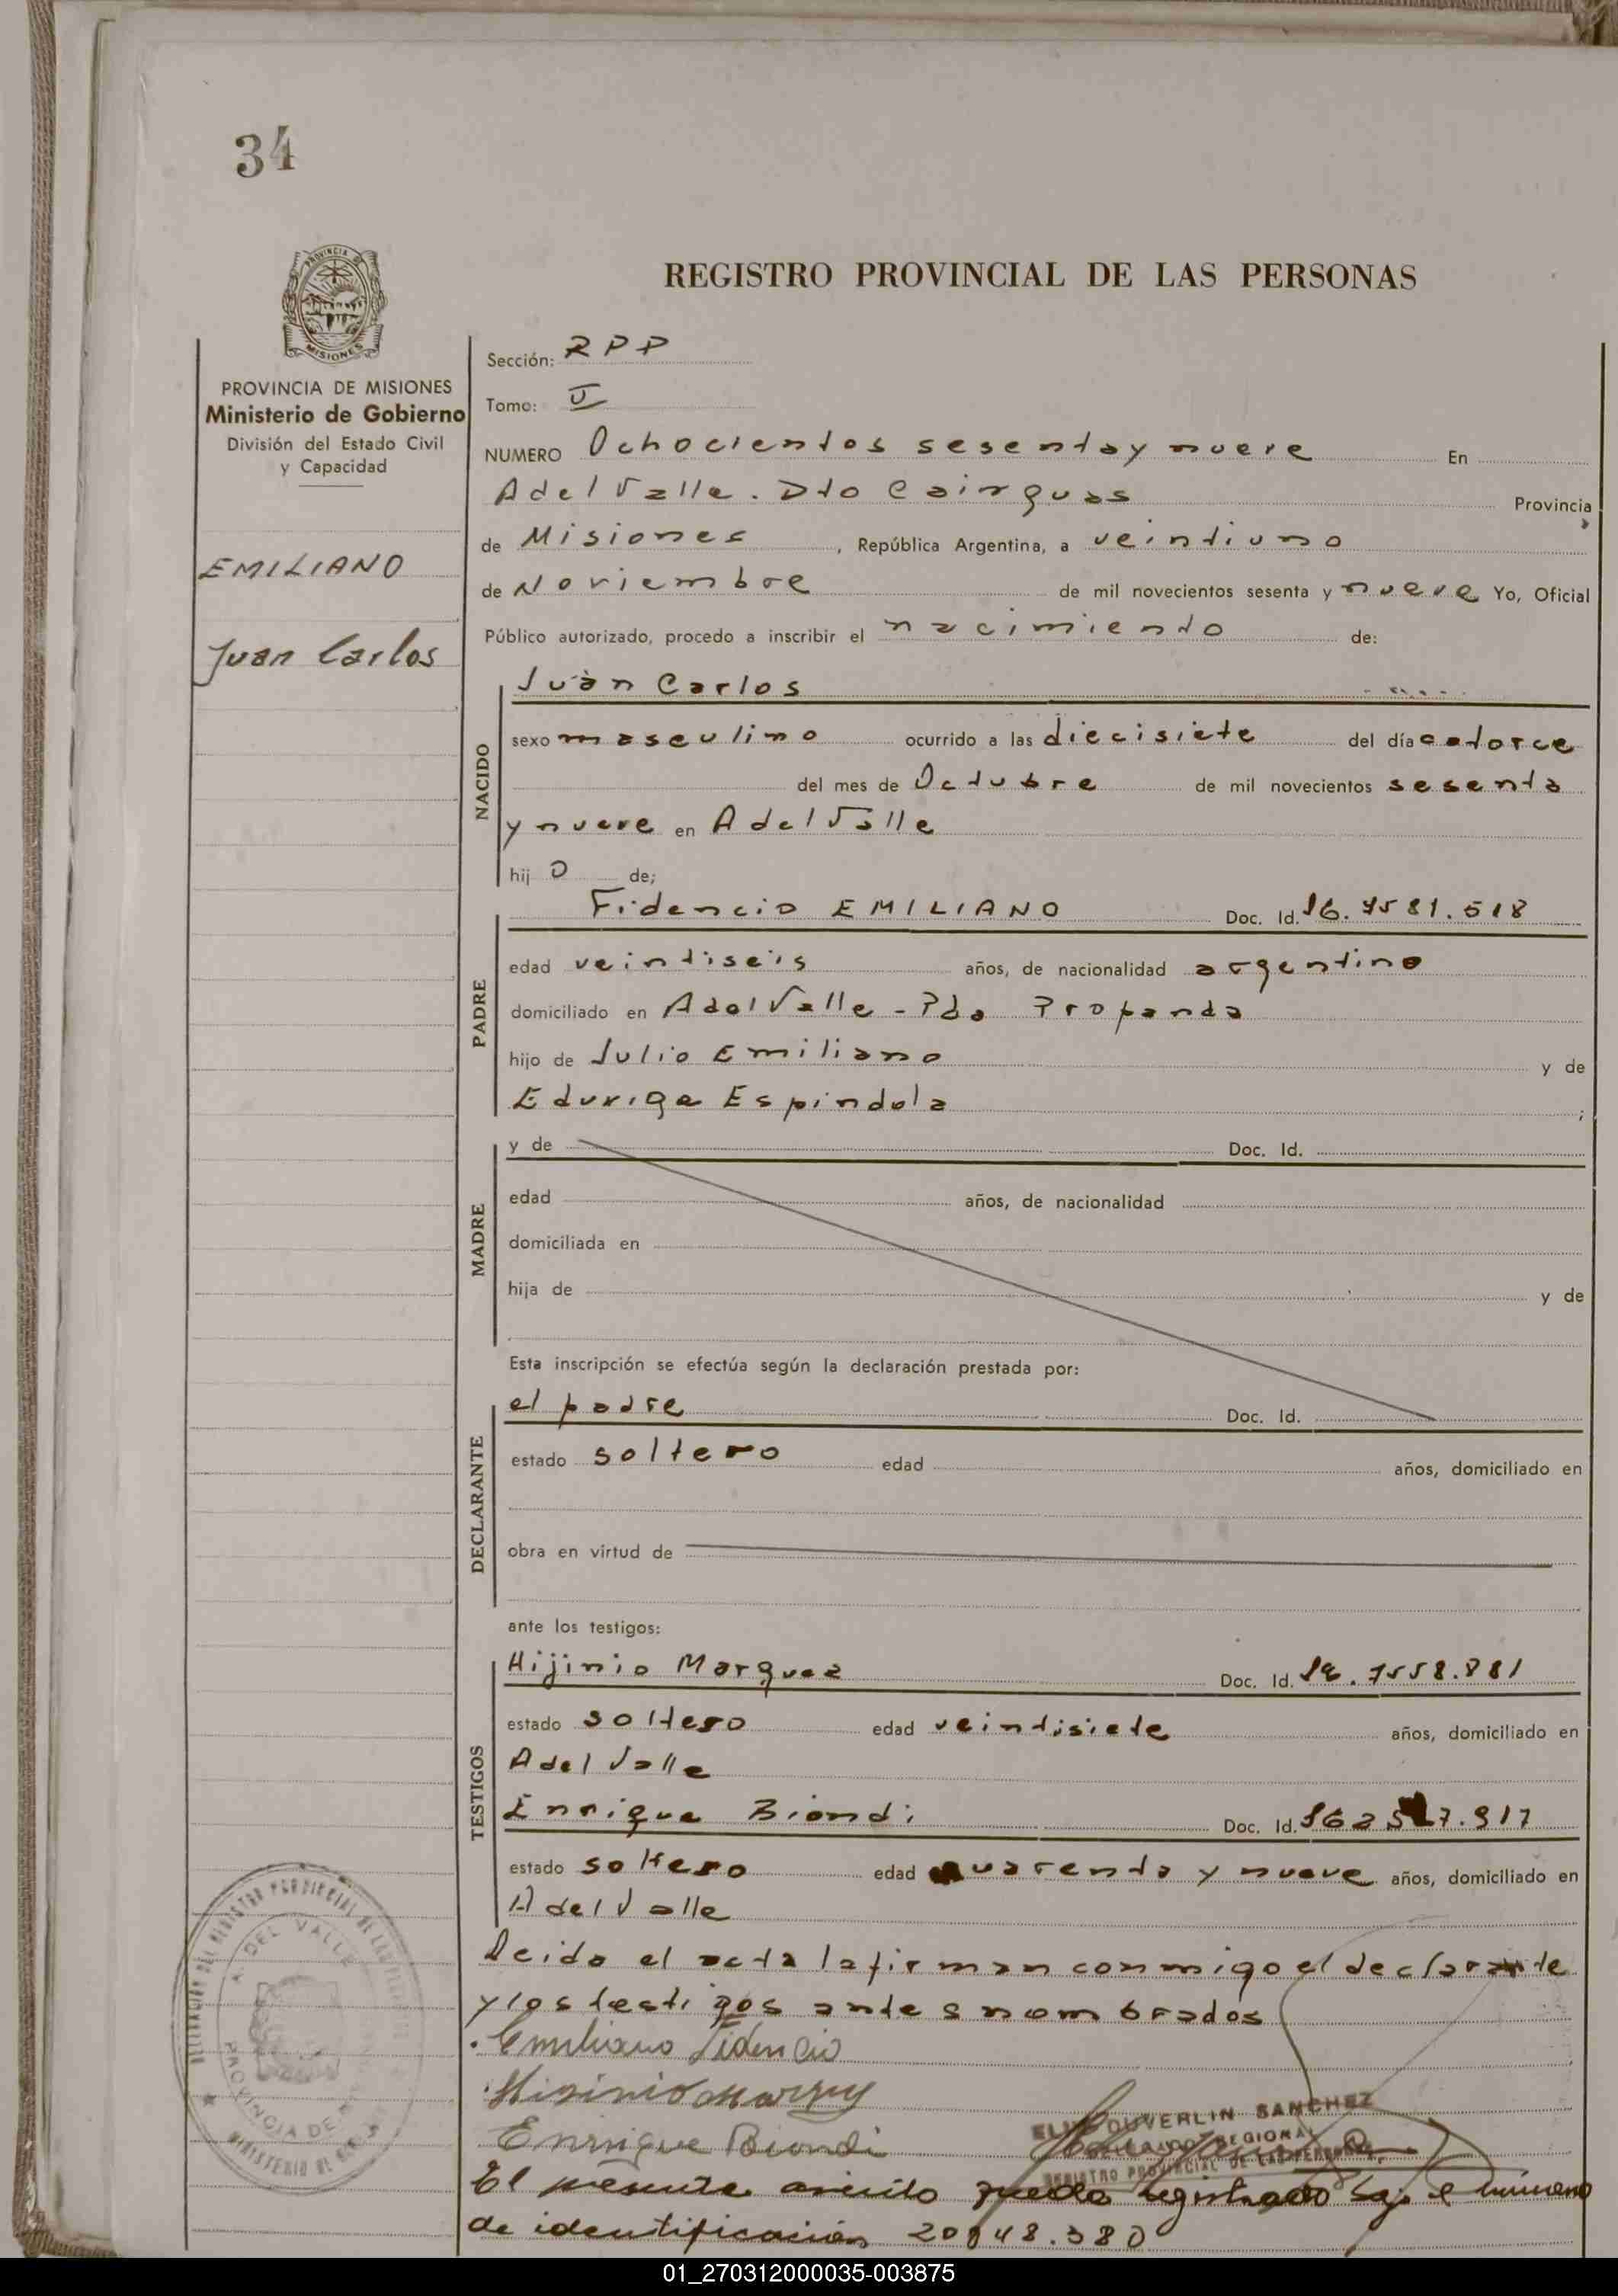 34
REGISTRO PROVINCIAL DE LAS PERSONAS
PROVINCIA DE MISIONES
Ministerio de Gobierno
División del Estado Civil
y Capacidad
EMILIANO
Juan Carlos
Sección: RPP
Tomo: II
NUMERO Ochocientos sesenta y nueve En
A del Valle. Dto Cainguas Provincia
de Misiones, República Argentina, a veintiuno
de Noviembre de mil novecientos sesenta y nueve Yo, Oficial
Público autorizado, procedo a inscribir el nacimiento de:
NACIDO
Juan Carlos
sexo masculino ocurrido a las diecisiete del día catorce
del mes de Octubre de mil novecientos sesenta
y nueve en A del Valle
hijo de;
PADRE
Fidencio EMILIANO Doc. Id.
edad veintiseis años, de nacionalidad argentino
domiciliado en A del Valle - Pda Propanda
hijo de Julio Emiliano y de
Eduviga Espindola ;
MADRE
y de Doc. Id.
edad años, de nacionalidad
domiciliada en
hija de y de
Esta inscripción se efectúa según la declaración prestada por:
DECLARANTE
el padre Doc. Id.
estado soltero edad años, domiciliado en
obra en virtud de
ante los testigos:
TESTIGOS
Hijinio Marquez Doc. Id.
estado soltero edad veintisiete años, domiciliado en
A del Valle
Enrique Biondi Doc. Id.
estado soltero edad cuarenta y nueve años, domiciliado en
A del Valle
Leida el acta la firman conmigo el declarante
y los testigos antes nombrados
Emiliano Fidencio
Enrique Biondi
DUVERLIN SANCHEZ
DELEGADO REGIONAL
REGISTRO PROVINCIAL DE LAS PERSONAS
El presente asiento queda registrado bajo el número
de identificación 20948.380
DELEGACION DEL REGISTRO PROVINCIAL DE LAS PERSONAS
A. DEL VALLE
PROVINCIA DE MISIONES
MINISTERIO DE
01_270312000035-003875